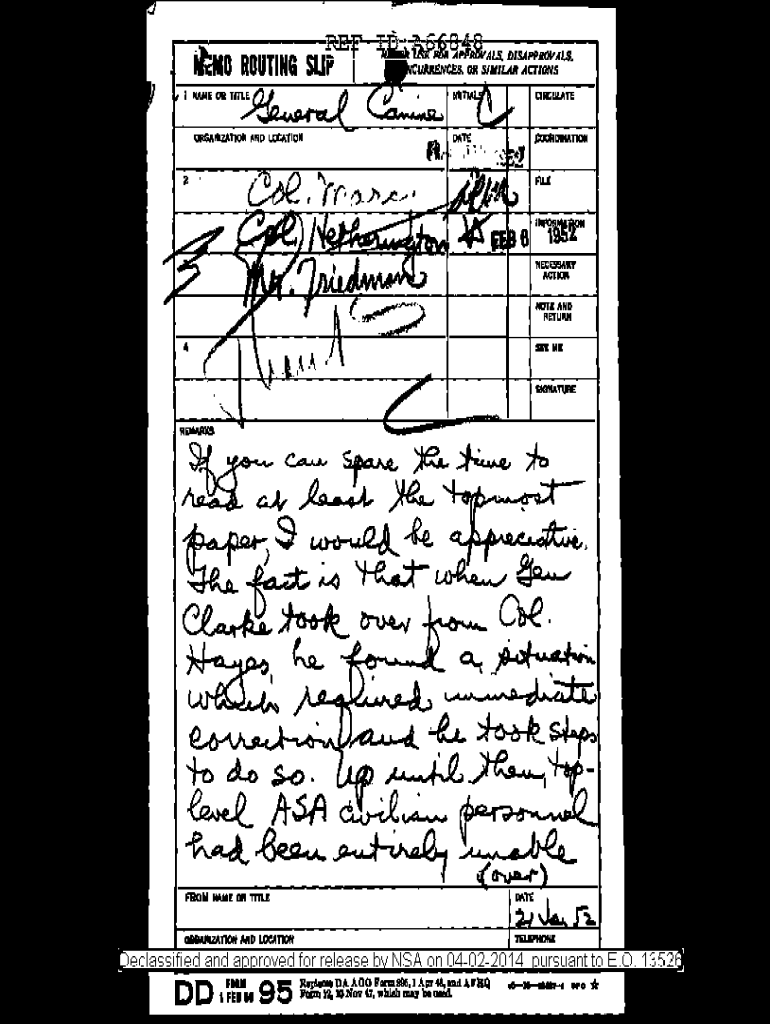 REF ID:A66848
MEMO ROUTING SLIP
USE FOR APPROVALS, DISAPPROVALS,
CONCURRENCES, OR SIMILAR ACTIONS
1 NAME OR TITLE General Canine INITIALS C CIRCULATE
ORGANIZATION AND LOCATION DATE COORDINATION
2 Col. FILE
Col Hetherington FEB 8 1952 INFORMATION
3 Mr. Friedman NECESSARY
ACTION
NOTE AND
RETURN
4 SEE ME
SIGNATURE
REMARKS
If you can spare the time to
read at least the topmost
paper, I would be appreciative.
The fact is that when Gen
Clarke took over from Col.
Hayes, he found a situation
which required immediate
correction and he took steps
to do so. Up until then, top-
level ASA civilian personnel
had been entirely unable
(over)
FROM NAME OR TITLE DATE
21 Jan 52
ORGANIZATION AND LOCATION TELEPHONE
Declassified and approved for release by NSA on 04-02-2014 pursuant to E.O. 13526
DD FORM 1 FEB 50 95 Replaces DA AGO Form 895, 1 Apr 48, and AFHQ
Form 12, 10 Nov 47, which may be used.